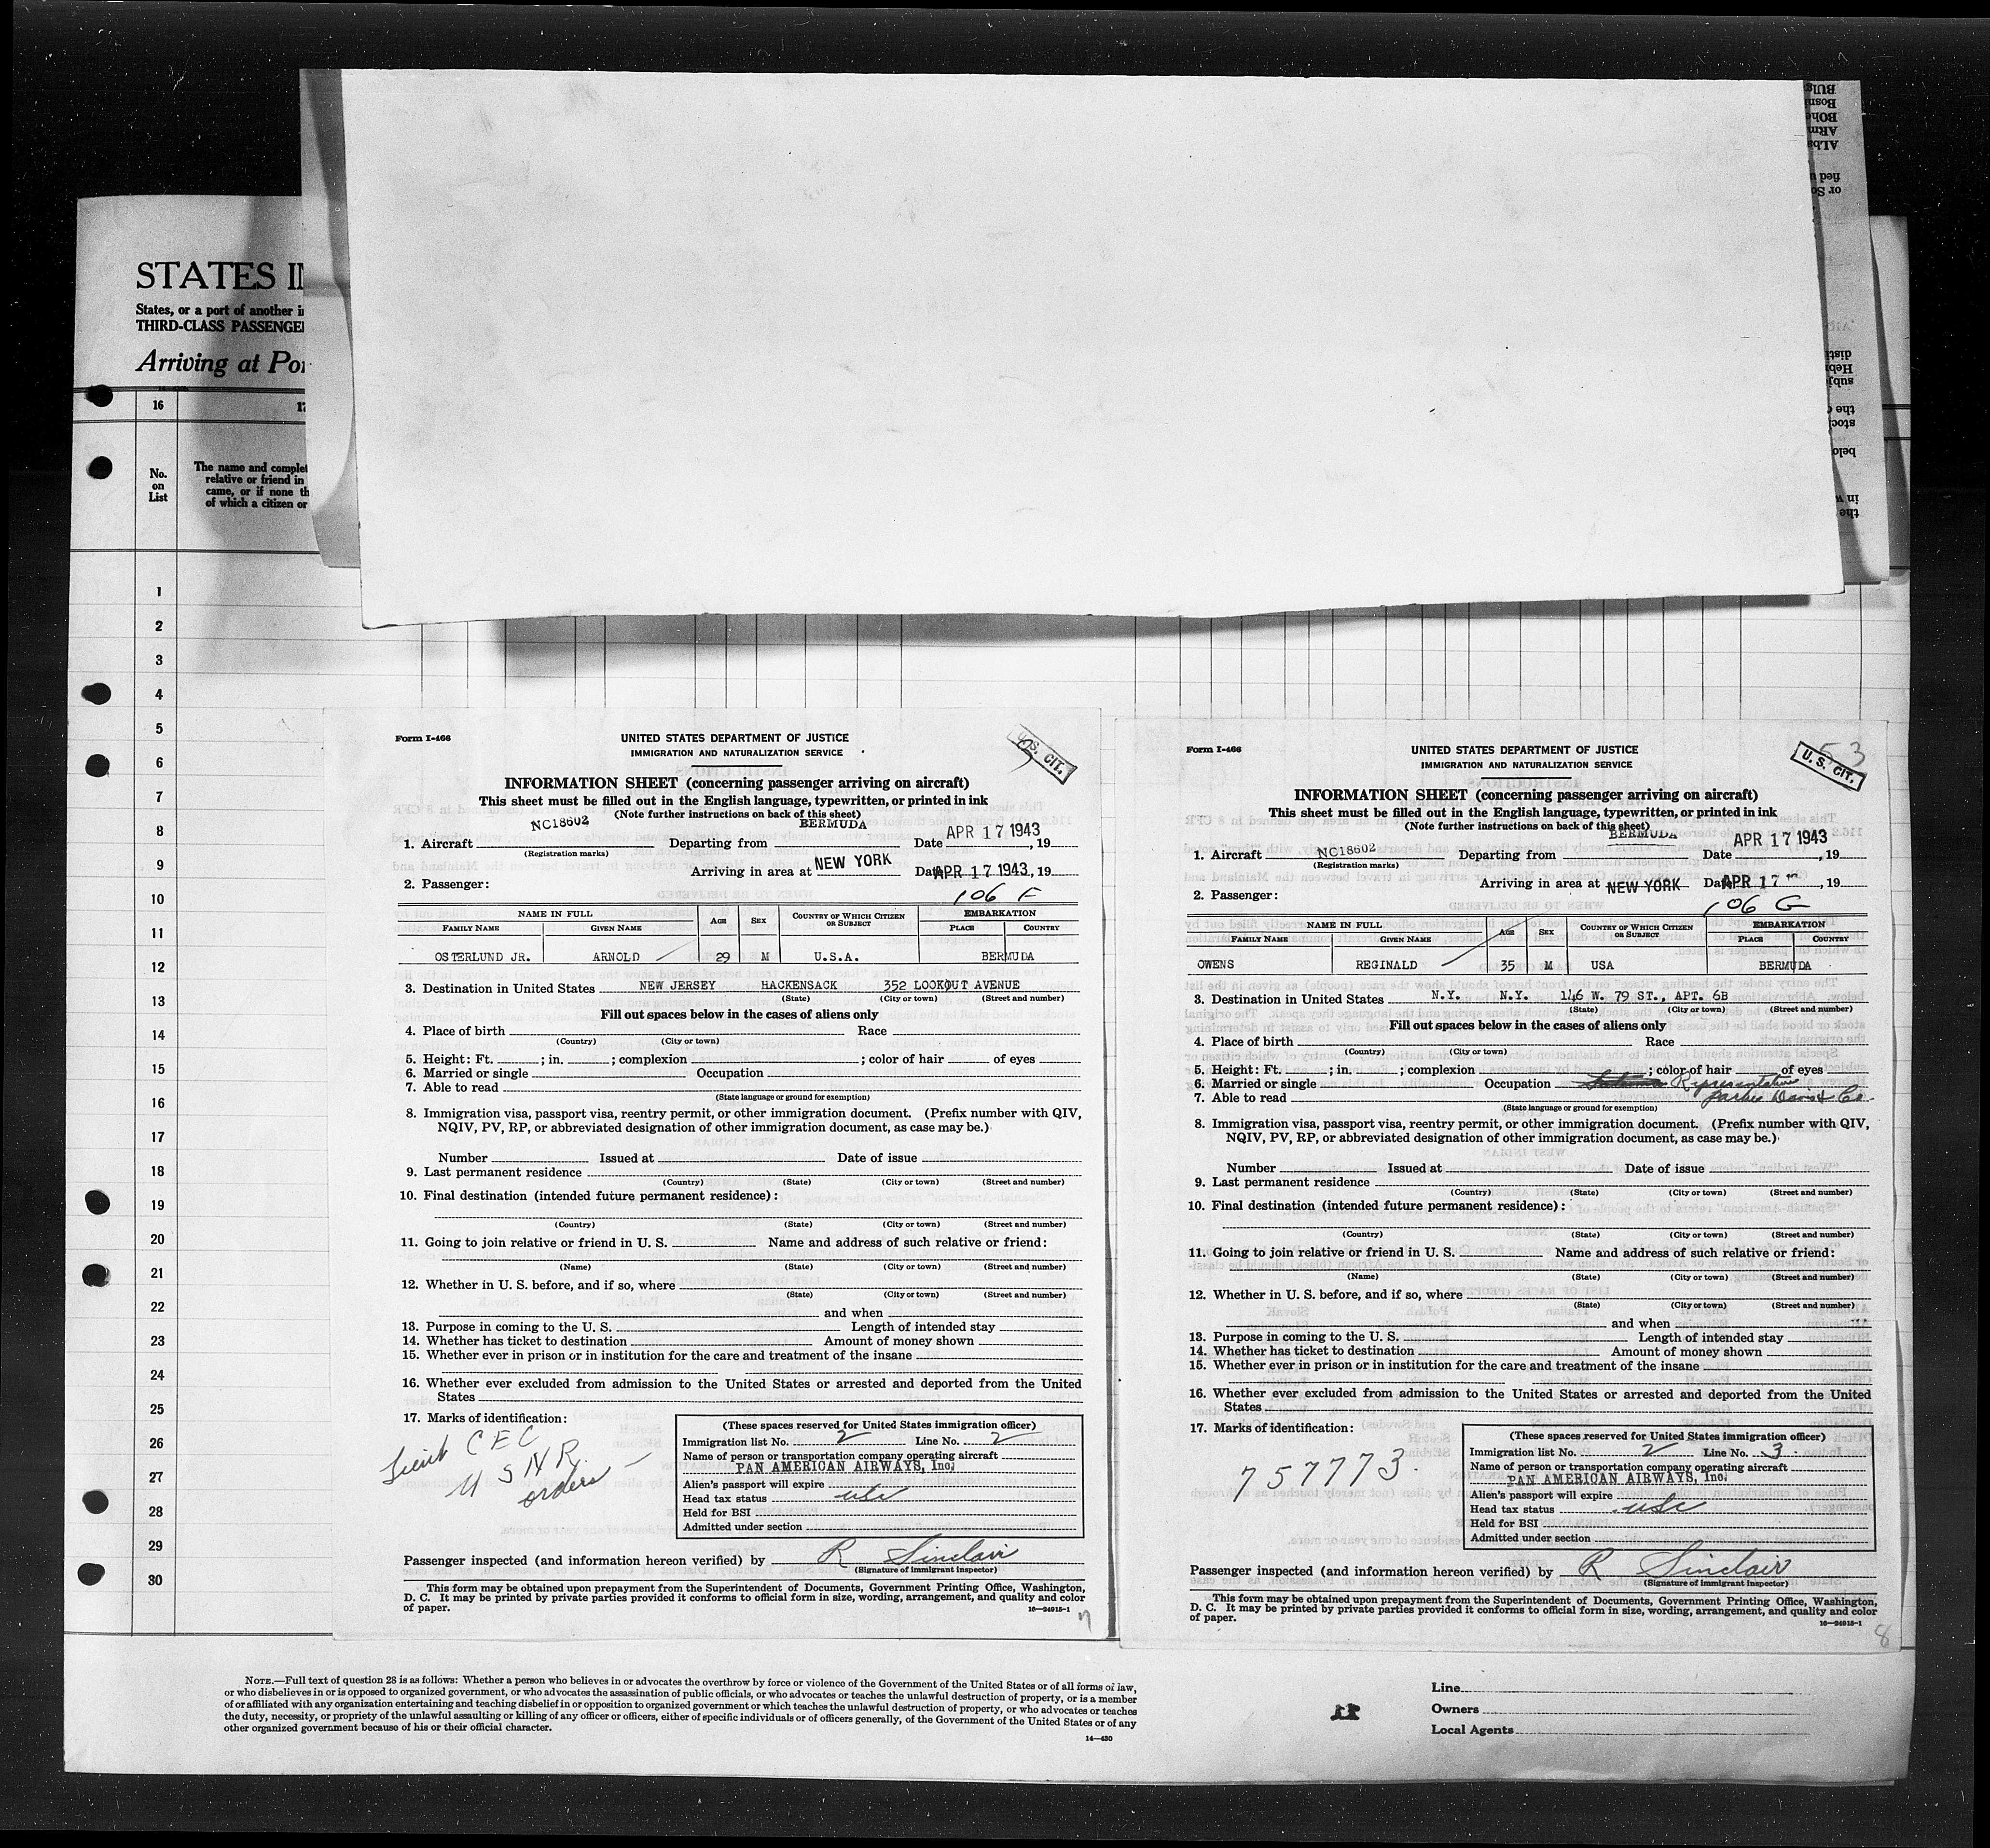 STATES IN
States, or a port of another i
THIRD-CLASS PASSENGE
Arriving at Por
16
No.
on
List
The name and complet
relative or friend in
came, or if none th
of which a citizen or
1
2
3
4
5
6
7
8
9
10
11
12
13
14
15
16
17
18
19
20
21
22
23
24
25
26
27
28
29
30
Form I-466
UNITED STATES DEPARTMENT OF JUSTICE
IMMIGRATION AND NATURALIZATION SERVICE
U.S. CIT.
INFORMATION SHEET (concerning passenger arriving on aircraft)
This sheet must be filled out in the English language, typewritten, or printed in ink
(Note further instructions on back of this sheet)
1. Aircraft NC18602 Departing from BERMUDA Date APR 17 1943, 19
(Registration marks)
Arriving in area at NEW YORK Date APR 17 1943, 19
2. Passenger: 106 F
NAME IN FULL AGE SEX COUNTRY OF WHICH CITIZEN OR SUBJECT EMBARKATION
FAMILY NAME GIVEN NAME PLACE COUNTRY
OSTERLUND JR. ARNOLD 29 M U.S.A. BERMUDA
3. Destination in United States NEW JERSEY HACKENSACK 352 LOOKOUT AVENUE
(State) (City or town) (Street and number)
Fill out spaces below in the cases of aliens only
4. Place of birth Race
(Country) (City or town)
5. Height: Ft. ; in. ; complexion ; color of hair of eyes
6. Married or single Occupation
7. Able to read
(State language or ground for exemption)
8. Immigration visa, passport visa, reentry permit, or other immigration document. (Prefix number with QIV,
NQIV, PV, RP, or abbreviated designation of other immigration document, as case may be.)
Number Issued at Date of issue
9. Last permanent residence
(Country) (State) (City or town) (Street and number)
10. Final destination (intended future permanent residence):
(Country) (State) (City or town) (Street and number)
11. Going to join relative or friend in U. S. Name and address of such relative or friend:
(Name) (State) (City or town) (Street and number)
12. Whether in U. S. before, and if so, where
(State) (City or town) (Street and number)
and when
13. Purpose in coming to the U. S. Length of intended stay
14. Whether has ticket to destination Amount of money shown
15. Whether ever in prison or in institution for the care and treatment of the insane
16. Whether ever excluded from admission to the United States or arrested and deported from the United
States
17. Marks of identification:
Lieut CEC
USNR
orders
(These spaces reserved for United States immigration officer)
Immigration list No. 2 Line No. 2
Name of person or transportation company operating aircraft
PAN AMERICAN AIRWAYS, Inc.
Alien's passport will expire
Head tax status usc
Held for BSI
Admitted under section
Passenger inspected (and information hereon verified) by R Sinclair
(Signature of immigrant inspector)
This form may be obtained upon prepayment from the Superintendent of Documents, Government Printing Office, Washington,
D. C. It may be printed by private parties provided it conforms to official form in size, wording, arrangement, and quality and color
of paper. 16—24915-1
7
Form I-466
UNITED STATES DEPARTMENT OF JUSTICE
IMMIGRATION AND NATURALIZATION SERVICE
53
U. S. CIT.
INFORMATION SHEET (concerning passenger arriving on aircraft)
This sheet must be filled out in the English language, typewritten, or printed in ink
(Note further instructions on back of this sheet)
1. Aircraft NC18602 Departing from BERMUDA Date APR 17 1943, 19
(Registration marks)
Arriving in area at NEW YORK Date APR 17, 19
2. Passenger: 106 G
NAME IN FULL AGE SEX COUNTRY OF WHICH CITIZEN OR SUBJECT EMBARKATION
FAMILY NAME GIVEN NAME PLACE COUNTRY
OWENS REGINALD 35 M USA BERMUDA
3. Destination in United States N.Y. N.Y. 146 W. 79 ST., APT. 6B
(State) (City or town) (Street and number)
Fill out spaces below in the cases of aliens only
4. Place of birth Race
(Country) (City or town)
5. Height: Ft. ; in. ; complexion ; color of hair of eyes
6. Married or single Occupation Representative
7. Able to read Parke Davis & Co.
(State language or ground for exemption)
8. Immigration visa, passport visa, reentry permit, or other immigration document. (Prefix number with QIV,
NQIV, PV, RP, or abbreviated designation of other immigration document, as case may be.)
Number Issued at Date of issue
9. Last permanent residence
(Country) (State) (City or town) (Street and number)
10. Final destination (intended future permanent residence):
(Country) (State) (City or town) (Street and number)
11. Going to join relative or friend in U. S. Name and address of such relative or friend:
(Name) (State) (City or town) (Street and number)
12. Whether in U. S. before, and if so, where
(State) (City or town) (Street and number)
and when
13. Purpose in coming to the U. S. Length of intended stay
14. Whether has ticket to destination Amount of money shown
15. Whether ever in prison or in institution for the care and treatment of the insane
16. Whether ever excluded from admission to the United States or arrested and deported from the United
States
17. Marks of identification:
757773.
(These spaces reserved for United States immigration officer)
Immigration list No. 2 Line No. 3
Name of person or transportation company operating aircraft
PAN AMERICAN AIRWAYS, Inc.
Alien's passport will expire
Head tax status usc
Held for BSI
Admitted under section
Passenger inspected (and information hereon verified) by R Sinclair
(Signature of immigrant inspector)
This form may be obtained upon prepayment from the Superintendent of Documents, Government Printing Office, Washington,
D. C. It may be printed by private parties provided it conforms to official form in size, wording, arrangement, and quality and color
of paper. 16—24915-1
8
NOTE.—Full text of question 28 is as follows: Whether a person who believes in or advocates the overthrow by force or violence of the Government of the United States or of all forms of law,
or who disbelieves in or is opposed to organized government, or who advocates the assassination of public officials, or who advocates or teaches the unlawful destruction of property, or is a member
of or affiliated with any organization entertaining and teaching disbelief in or opposition to organized government or which teaches the unlawful destruction of property, or who advocates or teaches
the duty, necessity, or propriety of the unlawful assaulting or killing of any officer or officers, either of specific individuals or of officers generally, of the Government of the United States or of any
other organized government because of his or their official character.
14—430
11
Line
Owners
Local Agents